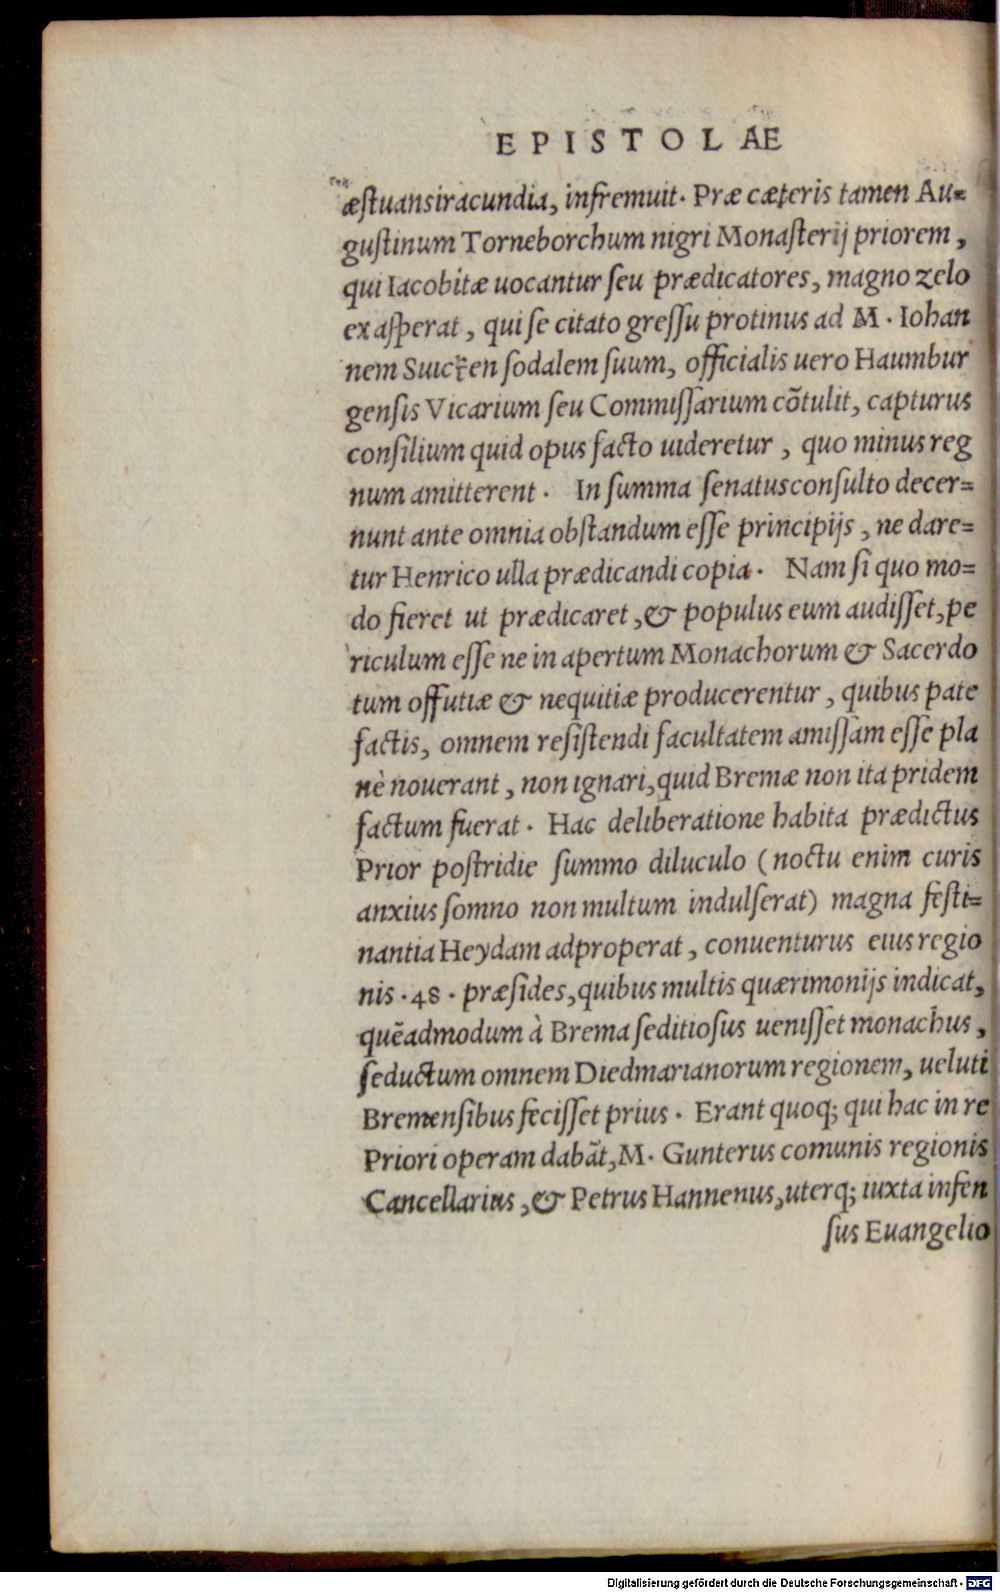 EPISTOLAE
æstuans iracundia, infremuit. Præ cæteris tamen Au=
gustinum Torneborchum nigri Monasterij priorem,
qui Iacobitæ uocantur seu prædicatores, magno zelo
exasperat, qui se citato gressu protinus ad M. Iohan
nem Suicken sodalem suum, officialis uero Haumbur
gensis Vicarium seu Commissarium cõtulit, capturus
consilium quid opus facto uideretur, quo minus reg
num amitterent. In summa senatusconsulto decer=
nunt ante omnia obstandum esse principijs, ne dare=
tur Henrico ulla prædicandi copia. Nam si quo mo=
do fieret ut prædicaret, & populus eum audisset, pe
riculum esse ne in apertum Monachorum & Sacerdo
tum offutiæ & nequitiæ producerentur, quibus pate
factis, omnem resistendi facultatem amissam esse pla
nè nouerant, non ignari, quid Bremæ non ita pridem
factum fuerat. Hac deliberatione habita prædictus
Prior postridie summo diluculo (noctu enim curis
anxius somno non multum indulserat) magna festi=
nantia Heydam adproperat, conuenturus eius regio
nis .48. præsides, quibus multis quærimonijs indicat,
quẽadmodum à Brema seditiosus uenisset monachus,
seductum omnem Diedmarianorum regionem, ueluti
Bremensibus fecisset prius. Erant quoq; qui hac in re
Priori operam dabãt, M. Gunterus comunis regionis
Cancellarius, & Petrus Hannenus, uterq; iuxta infen
sus Euangelio
Digitalisierung gefördert durch die Deutsche Forschungsgemeinschaft - DFG